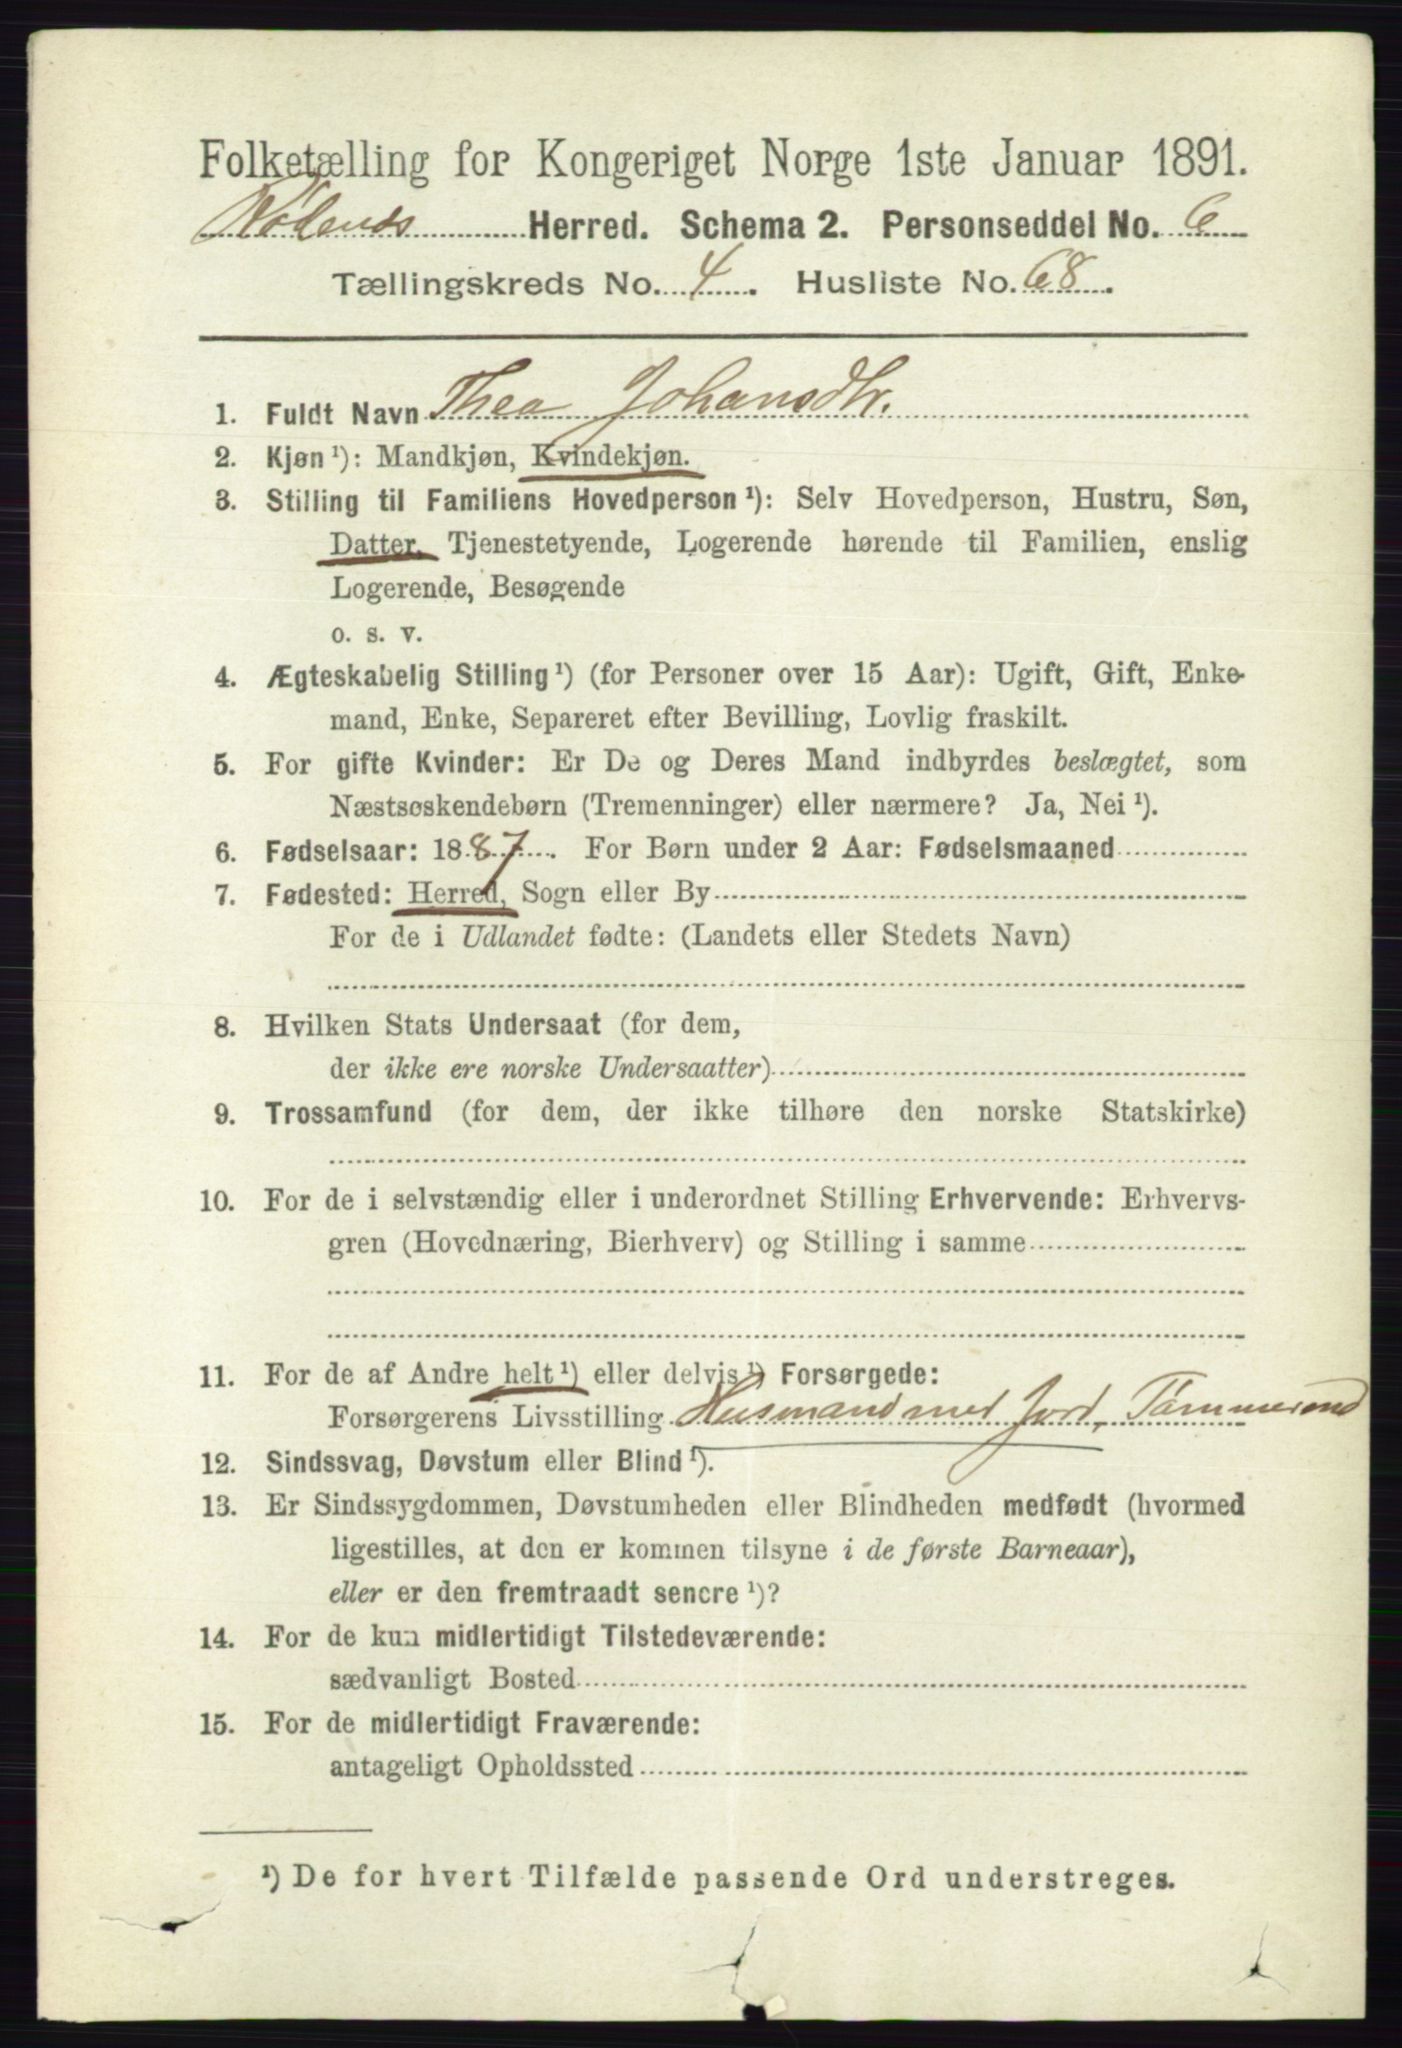 Folketælling for Kongeriget Norge 1ste Januar 1891.
Rødenes Herred. Schema 2. Personseddel No. 6
Tællingskreds No. 4. Husliste No. 68.
1. Fuldt Navn Thea Johansdtr.
2. Kjøn¹): Mandkjøn, Kvindekjøn.
3. Stilling til Familiens Hovedperson¹): Selv Hovedperson, Hustru, Søn,
Datter, Tjenestetyende, Logerende hørende til Familien, enslig
Logerende, Besøgende
o. s. v.
4. Ægteskabelig Stilling¹) (for Personer over 15 Aar): Ugift, Gift, Enke-
mand, Enke, Separeret efter Bevilling, Lovlig fraskilt.
5. For gifte Kvinder: Er De og Deres Mand indbyrdes beslægtet, som
Næstsøskendebørn (Tremenninger) eller nærmere? Ja, Nei¹).
6. Fødselsaar: 1887. For Børn under 2 Aar: Fødselsmaaned
7. Fødested: Herred, Sogn eller By
For de i Udlandet fødte: (Landets eller Stedets Navn)
8. Hvilken Stats Undersaat (for dem,
der ikke ere norske Undersaatter)
9. Trossamfund (for dem, der ikke tilhøre den norske Statskirke)
10. For de i selvstændig eller i underordnet Stilling Erhvervende: Erhvervs-
gren (Hovednæring, Bierhverv) og Stilling i samme
11. For de af Andre helt¹) eller delvis¹) Forsørgede:
Forsørgerens Livsstilling Husmand med Jord, Tømmermd
12. Sindssvag, Døvstum eller Blind¹).
13. Er Sindssygdommen, Døvstumheden eller Blindheden medfødt (hvormed
ligestilles, at den er kommen tilsyne i de første Barneaar),
eller er den fremtraadt senere¹)?
14. For de kun midlertidigt Tilstedeværende:
sædvanligt Bosted
15. For de midlertidigt Fraværende:
antageligt Opholdssted
¹) De for hvert Tilfælde passende Ord understreges.